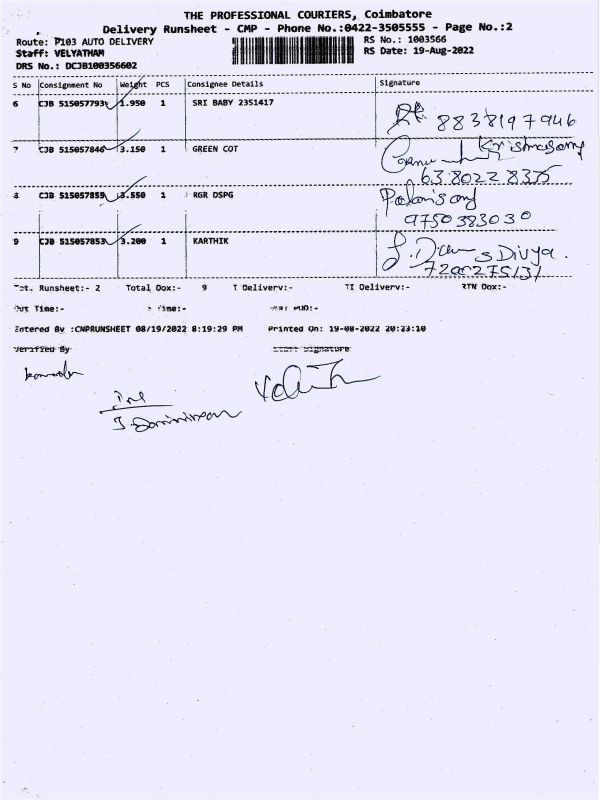 THE PROFESSIONAL COURIERS, Coimbatore
Delivery Runsheet - CMP - Phone No.:0422-3505555 - Page No.:2
Route: P103 AUTO DELIVERY RS No.: 1003566
Staff: VELYATHAM RS Date: 19-Aug-2022
DRS No.: DCJB100356602
S No Consignment No Weight PCS Consignee Details Signature
6 CJB 515057793 1.950 1 SRI BABY 2351417
8838197946
7 CJB 515057846 3.150 1 GREEN COT
Krishnasamy
63.80228375
8 CJB 515057859 3.550 1 RGR DSPG
Palanisamy
9750383030
9 CJB 515057853 3.200 1 KARTHIK
S Divya.
7200275131
Tot. Runsheet:- 2 Total Dox:- 9 T Delivery:- TI Delivery:- RTN Dox:-
Out Time:- Time:-
Entered By :CNPRUNSHEET 08/19/2022 8:19:29 PM Printed On: 19-08-2022 20:23:10
Verified By Staff Signature